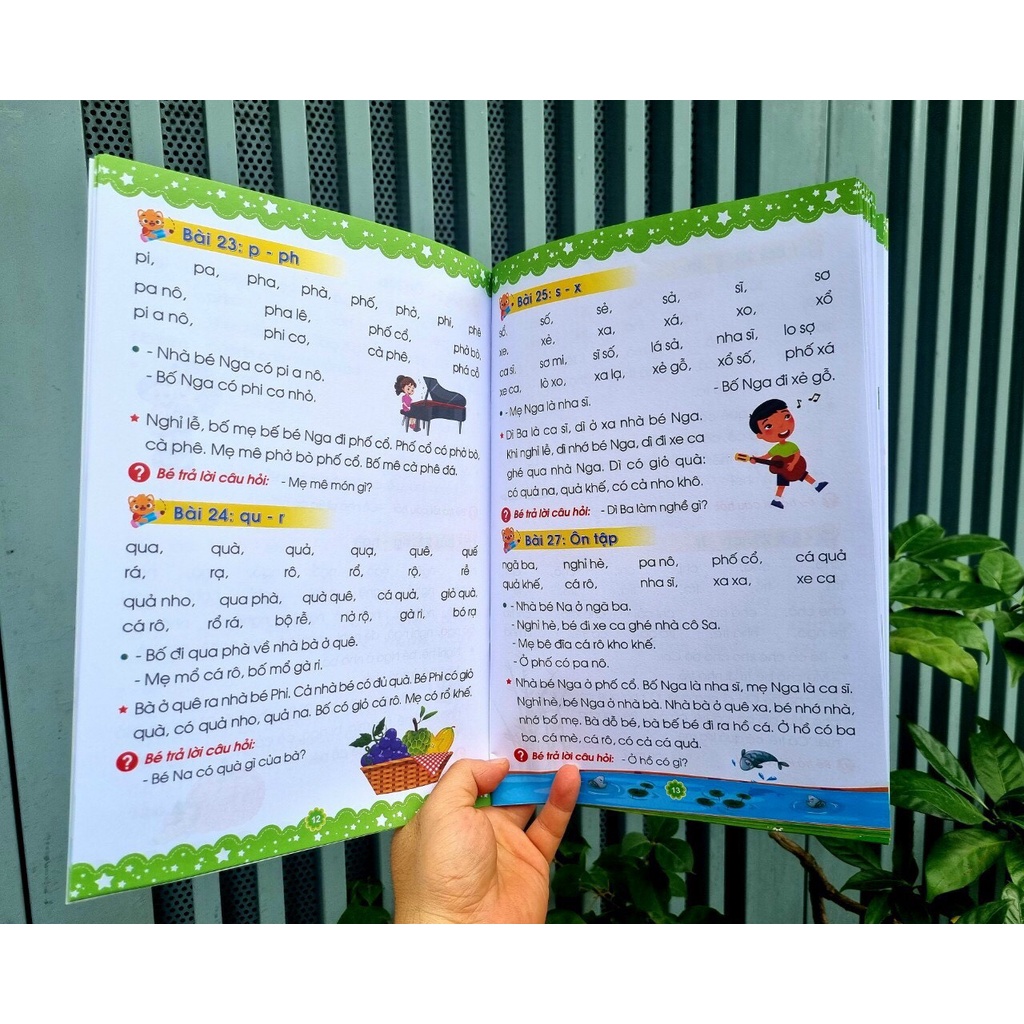 Bài 23: p - ph
pi, pa, pha, phà, phố, phở, phi, phê
pa nô, pha lê, phố cổ, phở bò,
pi a nô, phi cơ, cà phê, phá cỗ
- Nhà bé Nga có pi a nô.
- Bố Nga có phi ca nhỏ.
Nghỉ lễ, bố mẹ bế bé Nga đi phố cổ. Phố cổ có phở bò,
cà phê. Mẹ mê phở bò phố cổ. Bố mê cà phê đá.
Bé trả lời câu hỏi: - Mẹ mê món gì?
Bài 24: qu - r
qua, quà, quả, quạ, quê, quế
rá, rạ, rô, rổ, rộ, rễ
quả nho, qua phà, quà quê, cá quả, giỏ quả.
cá rô, rổ rá, bộ rễ, nở rộ, gà ri, bó rạ
- Bố đi qua phà về nhà bà ở quê.
- Mẹ mổ cá rô, bố mổ gà ri.
Bà ở quê ra nhà bé Phi. Cả nhà bé có đủ quà. Bé Phi có giỏ
quà, có quả nho, quả na. Bố có giỏ cá rô. Mẹ có rổ khế.
Bé trả lời câu hỏi:
- Bé Na có quà gì của bà?
12
Bài 25: s - x
sổ, số, sẻ, sả, sĩ, sơ
xe, xẻ, xa, xá, xo, xổ
ca sĩ, sơ mi, sĩ số, lá sả, nha sĩ, lo sợ
xe ca, lò xo, xa lạ, xẻ gỗ, xổ số, phố xá
- Mẹ Nga là nha sĩ. - Bố Nga đi xẻ gỗ.
Dì Ba là ca sĩ, dì ở xa nhà bé Nga.
Khi nghỉ lễ, dì nhớ bé Nga, dì đi xe ca
ghé qua nhà Nga. Dì có giỏ quà:
có quả na, quả khế, có cả nho khô.
Bé trả lời câu hỏi: - Dì Ba làm nghề gì?
Bài 27: Ôn tập
ngã ba, nghỉ hè, pa nô, phố cổ, cá quả
quả khế, cá rô, nha sĩ, xa xa, xe ca
- Nhà bé Na ở ngã ba.
- Nghỉ hè, bé đi xe ca ghé nhà cô Sa.
- Mẹ bê đĩa cá rô kho khế.
- Ở phố có pa nô.
Nhà bé Nga ở phố cổ. Bố Nga là nha sĩ, mẹ Nga là ca sĩ.
Nghỉ hè, bé Nga ở nhà bà. Nhà bà ở quê xa, bé nhớ nhà,
nhớ bố mẹ. Bà dỗ bé, bà bế bé đi ra hồ cá. Ở hồ có ba
ba, cá mè, cá rô, có cả cá quả.
Bé trả lời câu hỏi: - Ở hồ có gì?
13